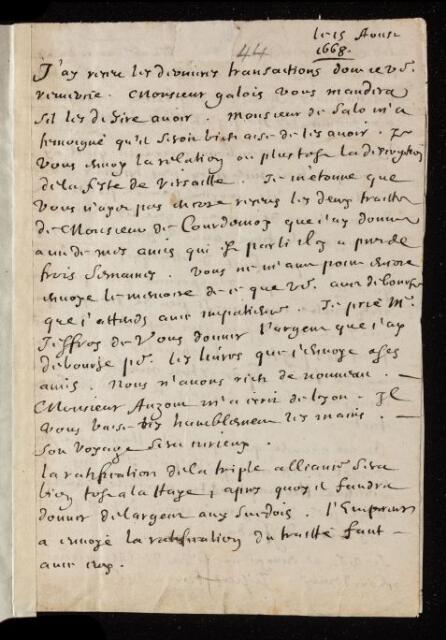 le 15 Aoust
44 1668.
J'ay receu les dernieres transactions dont ie v.s
remercie. Monsieur galois vous mandera
s'il les desire auoir. Monsieur de Salo m'a
temoigné qu'il seroit bien aise de les auoir. Je
vous enuoy la relation ou plustost la description
de la feste de Versaille. Je m'etonne que
vous n'ayez pas encore receus les deux traittez
de Monsieur de Cordemoy que i'ay donnez
a un de mes amis qui est parti il y a pres de
trois semaines. Vous ne m'auez point encore
enuoyé le memoire de ce que v.s auez debourcé
que j'attends auec impatience. Je prie Mr.
Jeffroy de Vous donner l'argent que i'ay
debourcé pr. les liures que j'enuoye a ses
amis. Nous n'auons rien de nouueau. —
Monsieur Auzout m'a écrit de lyon. Il
vous baise tres humblement les mains. —
Son voyage sera curieux.
la ratification de la triple alliance sera
bien tost a la Haye, apres quoy il faudra
donner de l'argent aux Suedois. l'Empereur
a enuoyé la ratification du traitté fait
auec